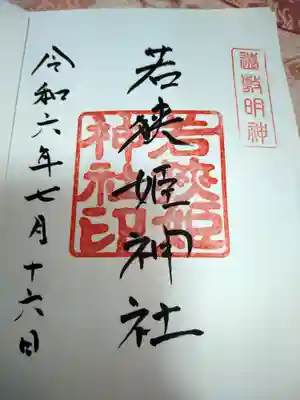 道敷明神
若狭姫神社
若狭姫
神社印
令和六年七月十六日